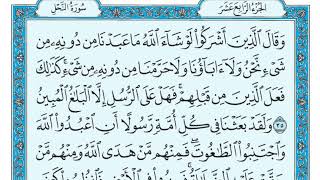 الجزء الرابع عشر سورة النحل
وَقَالَ الَّذِينَ أَشْرَكُوا لَوْ شَاءَ اللَّهُ مَا عَبَدْنَا مِن دُونِهِ مِن
شَيْءٍ نَّحْنُ وَلَا ءَابَاؤُنَا وَلَا حَرَّمْنَا مِن دُونِهِ مِن شَيْءٍ كَذَٰلِكَ
فَعَلَ الَّذِينَ مِن قَبْلِهِمْ فَهَلْ عَلَى الرُّسُلِ إِلَّا الْبَلَاغُ الْمُبِينُ
٣٥ وَلَقَدْ بَعَثْنَا فِي كُلِّ أُمَّةٍ رَّسُولًا أَنِ اعْبُدُوا اللَّهَ
وَاجْتَنِبُوا الطَّاغُوتَ فَمِنْهُم مَّنْ هَدَى اللَّهُ وَمِنْهُم مَّنْ